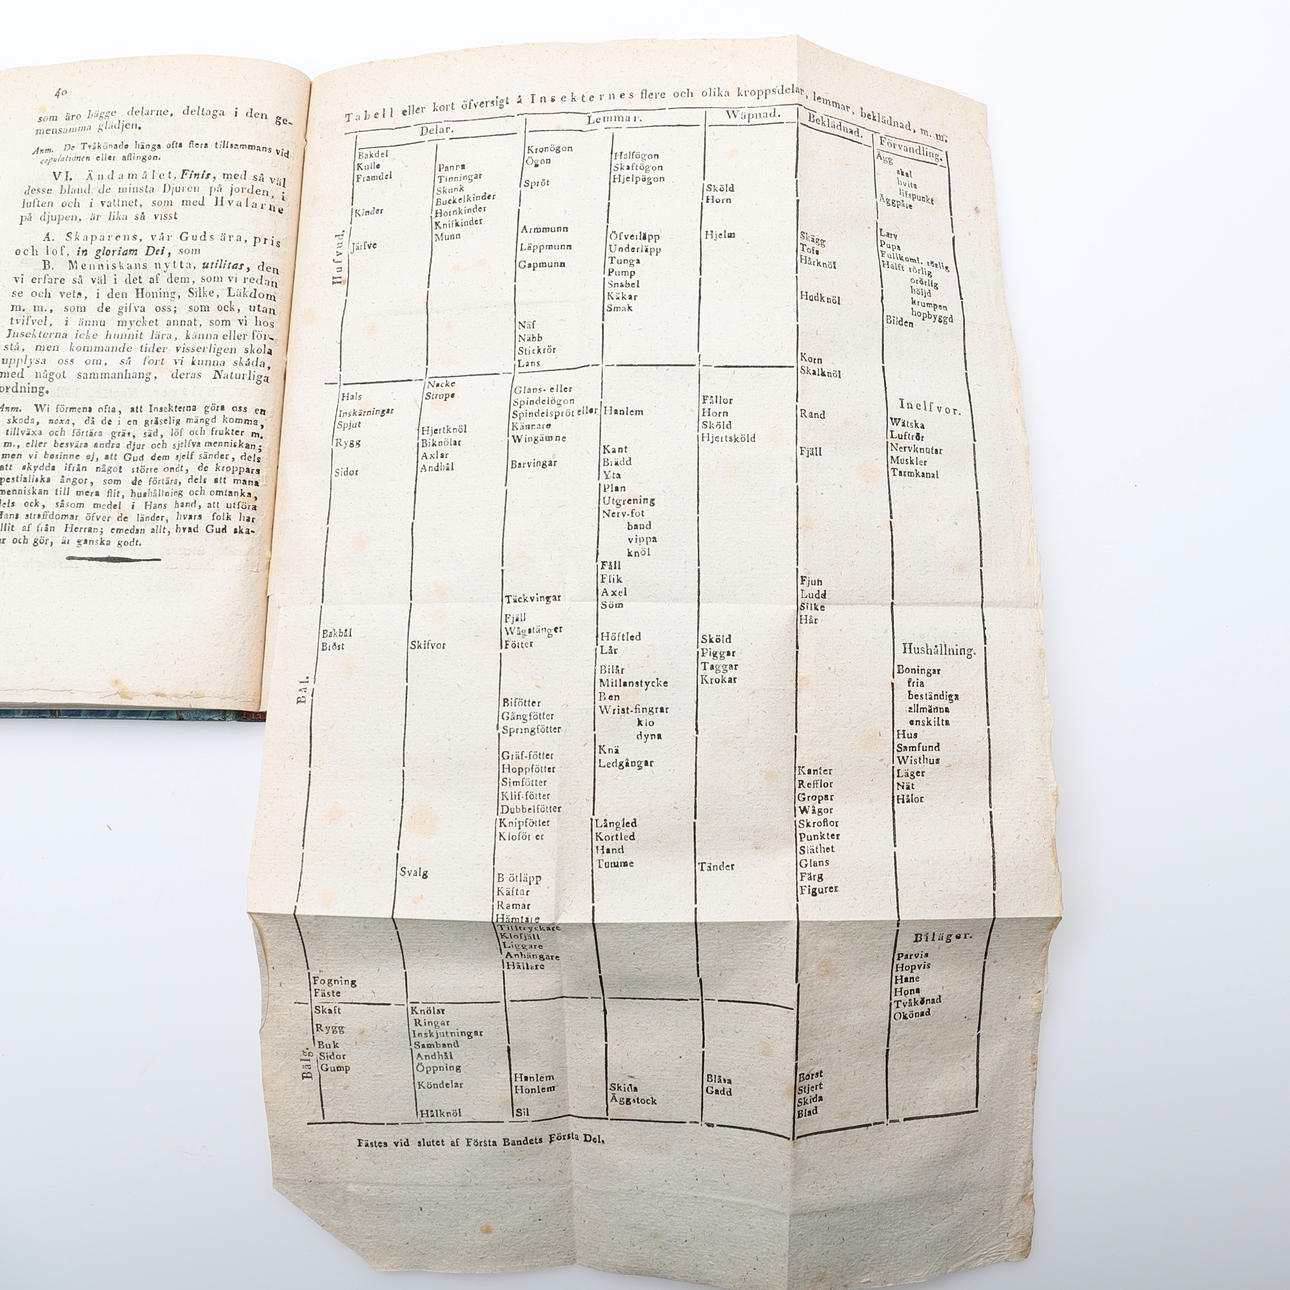 40
som äro bägge delarne, deltaga i den ge-
mensamma glädjen.
Anm. De Tvåkönade hänga ofta flera tillsammans vid
copulationen eller aflingen.
VI. Ändamålet, Finis, med så väl
desse bland de minsta Djuren på jorden, i
luften och i vattnet, som med Hvalarne
på djupen, är lika så visst
A. Skaparens, vår Guds ära, pris
och lof, in gloriam Dei, som
B. Menniskans nytta, utilitas, den
vi erfare så väl i det af dem, som vi redan
se och veta, i den Honing, Silke, Läkdom
m. m., som de gifva oss; som ock, utan
tvifvel, i ännu mycket annat, som vi hos
Insekterna icke hunnit lära, känna eller för-
stå, men kommande tider visserligen skola
upplysa oss om, så fort vi kunna skåda,
med något sammanhang, deras Naturliga
ordning.
Anm. Wi förmena ofta, att Insekterna göra oss en
skada, noxa, då de i en gräselig mängd komma,
tillväxa och förtära gräs, säd, löf och frukter m.
m., eller besvära andra djur och sjelfva menniskan;
men vi besinne ej, att Gud dem sjelf sänder, dels
att skydda ifrån något större ondt, de kroppars
pestialiska ångor, som de förtära, dels att mana
menniskan till mera flit, hushållning och omtanka,
dels ock, såsom medel i Hans hand, att utföra
Hans straffdomar öfver de länder, hvars folk har
fallit af från Herran; emedan allt, hvad Gud ska-
r och gör, är ganska godt.
Tabell eller kort öfversigt å Insekternes flere och olika kroppsdelar, lemmar, beklädnad, m. m.
Delar.
Lemmar.
Wäpnad.
Beklädnad.
Förvandling.
Hufvud.
Bakdel
Kulle
Framdel
Kinder
Järfve
Panna
Tinningar
Skunk
Buckelkinder
Hornkinder
Knifkinder
Munn
Kronögon
Ögon
Spröt
Armmunn
Läppmunn
Gapmunn
Näf
Näbb
Stickrör
Lans
Halfögon
Skaftögon
Hjelpögon
Öfverläpp
Underläpp
Tunga
Pump
Snabel
Käkar
Smak
Sköld
Horn
Hjelm
Skägg
Tofs
Hårknöl
Hudknöl
Korn
Skalknöl
Ägg
skal
hvita
lifspunkt
Äggpåse
Larv
Pupa
Fullkoml. rörlig
Halft rörlig
orörlig
höljd
krumpen
hopbyggd
Bilden
Bål.
Hals
Inskärningar
Spjut
Rygg
Sidor
Bakbål
Bröst
Fogning
Fäste
Nacke
Strupe
Hjertknöl
Biknölar
Axlar
Andhål
Skifvor
Svalg
Glans- eller
Spindelögon
Spindelspröt eller
Kännare
Wingämne
Barvingar
Täckvingar
Fjäll
Wågstänger
Fötter
Bifötter
Gångfötter
Springfötter
Gräf-fötter
Hoppfötter
Simfötter
Klif-fötter
Dubbelfötter
Knipfötter
Kloföt er
B ötläpp
Käftar
Ramar
Hämtare
Tilltryckare
Klofjäll
Liggare
Anhängare
Hållare
Hanlem
Kant
Brädd
Yta
Plan
Utgrening
Nerv-fot
band
vippa
knöl
Fåll
Flik
Axel
Söm
Höftled
Lår
Bilår
Mittanstycke
Ben
Wrist-fingrar
klo
dyna
Knä
Ledgångar
Långled
Kortled
Hand
Tumme
Fållor
Horn
Sköld
Hjertsköld
Sköld
Piggar
Taggar
Krokar
Tänder
Rand
Fjäll
Fjun
Ludd
Silke
Hår
Kanter
Refflor
Gropar
Wågor
Skroflor
Punkter
Släthet
Glans
Färg
Figurer
Inelfvor.
Wätska
Luftrör
Nervknutar
Muskler
Tarmkanal
Hushållning.
Boningar
fria
beständiga
allmänna
enskilta
Hus
Samfund
Wisthus
Läger
Nät
Hålor
Biläger.
Parvis
Hopvis
Hane
Hona
Tvåkönad
Okönad
Bälg.
Skaft
Rygg
Buk
Sidor
Gump
Knölar
Ringar
Inskjutningar
Samband
Andhål
Öppning
Köndelar
Hålknöl
Hanlem
Honlem
Sil
Skida
Äggstock
Blåsa
Gadd
Borst
Stjert
Skida
Blad
Fästes vid slutet af Första Bandets Första Del.